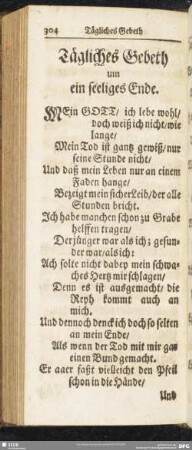 304 Tägliches Gebeth
Tägliches Gebeth
um
ein seeliges Ende.
MEin GOTT/ ich lebe wohl/
doch weiß ich nicht/ wie
lange/
Mein Tod ist gantz gewiß/ nur
seine Stunde nicht/
Und daß mein Leben nur an einem
Faden hange/
Bezeigt mein sicher Leib/ der alle
Stunden bricht.
Ich habe manchen schon zu Grabe
helffen tragen/
Der jünger war als ich; gesun-
der war/ als ich:
Ach solte nicht dabey mein schwa-
ches Hertz mir schlagen/
Denn es ist ausgemacht/ die
Reyh kommt auch an
mich.
Und dennoch denck ich doch so selten
an mein Ende/
Als wenn der Tod mit mir gar
einen Bund gemacht.
Er aber faßt vielleicht den Pfeil
schon in die Hände/
Und